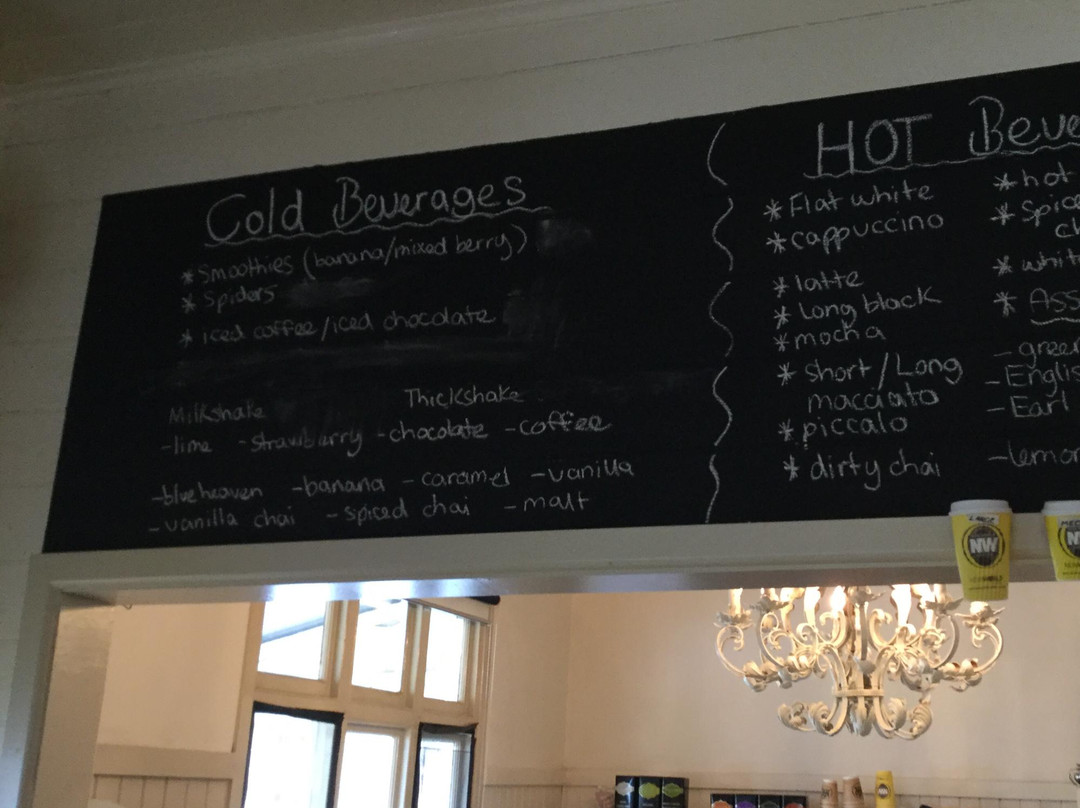 Cold Beverages
* Smoothies (banana/mixed berry)
* Spiders
* iced coffee/iced chocolate
Milkshake Thickshake
- lime - strawberry - chocolate - coffee
- blue heaven - banana - caramel - vanilla
- vanilla chai - spiced chai - malt
HOT Beve
* Flat white
* cappuccino
* latte
* Long black
* mocha
* short/Long
macciato
* piccalo
* dirty chai
* hot
* Spice
ch
* whit
* Ass
- green
- Englis
- Earl
- lemon
NW